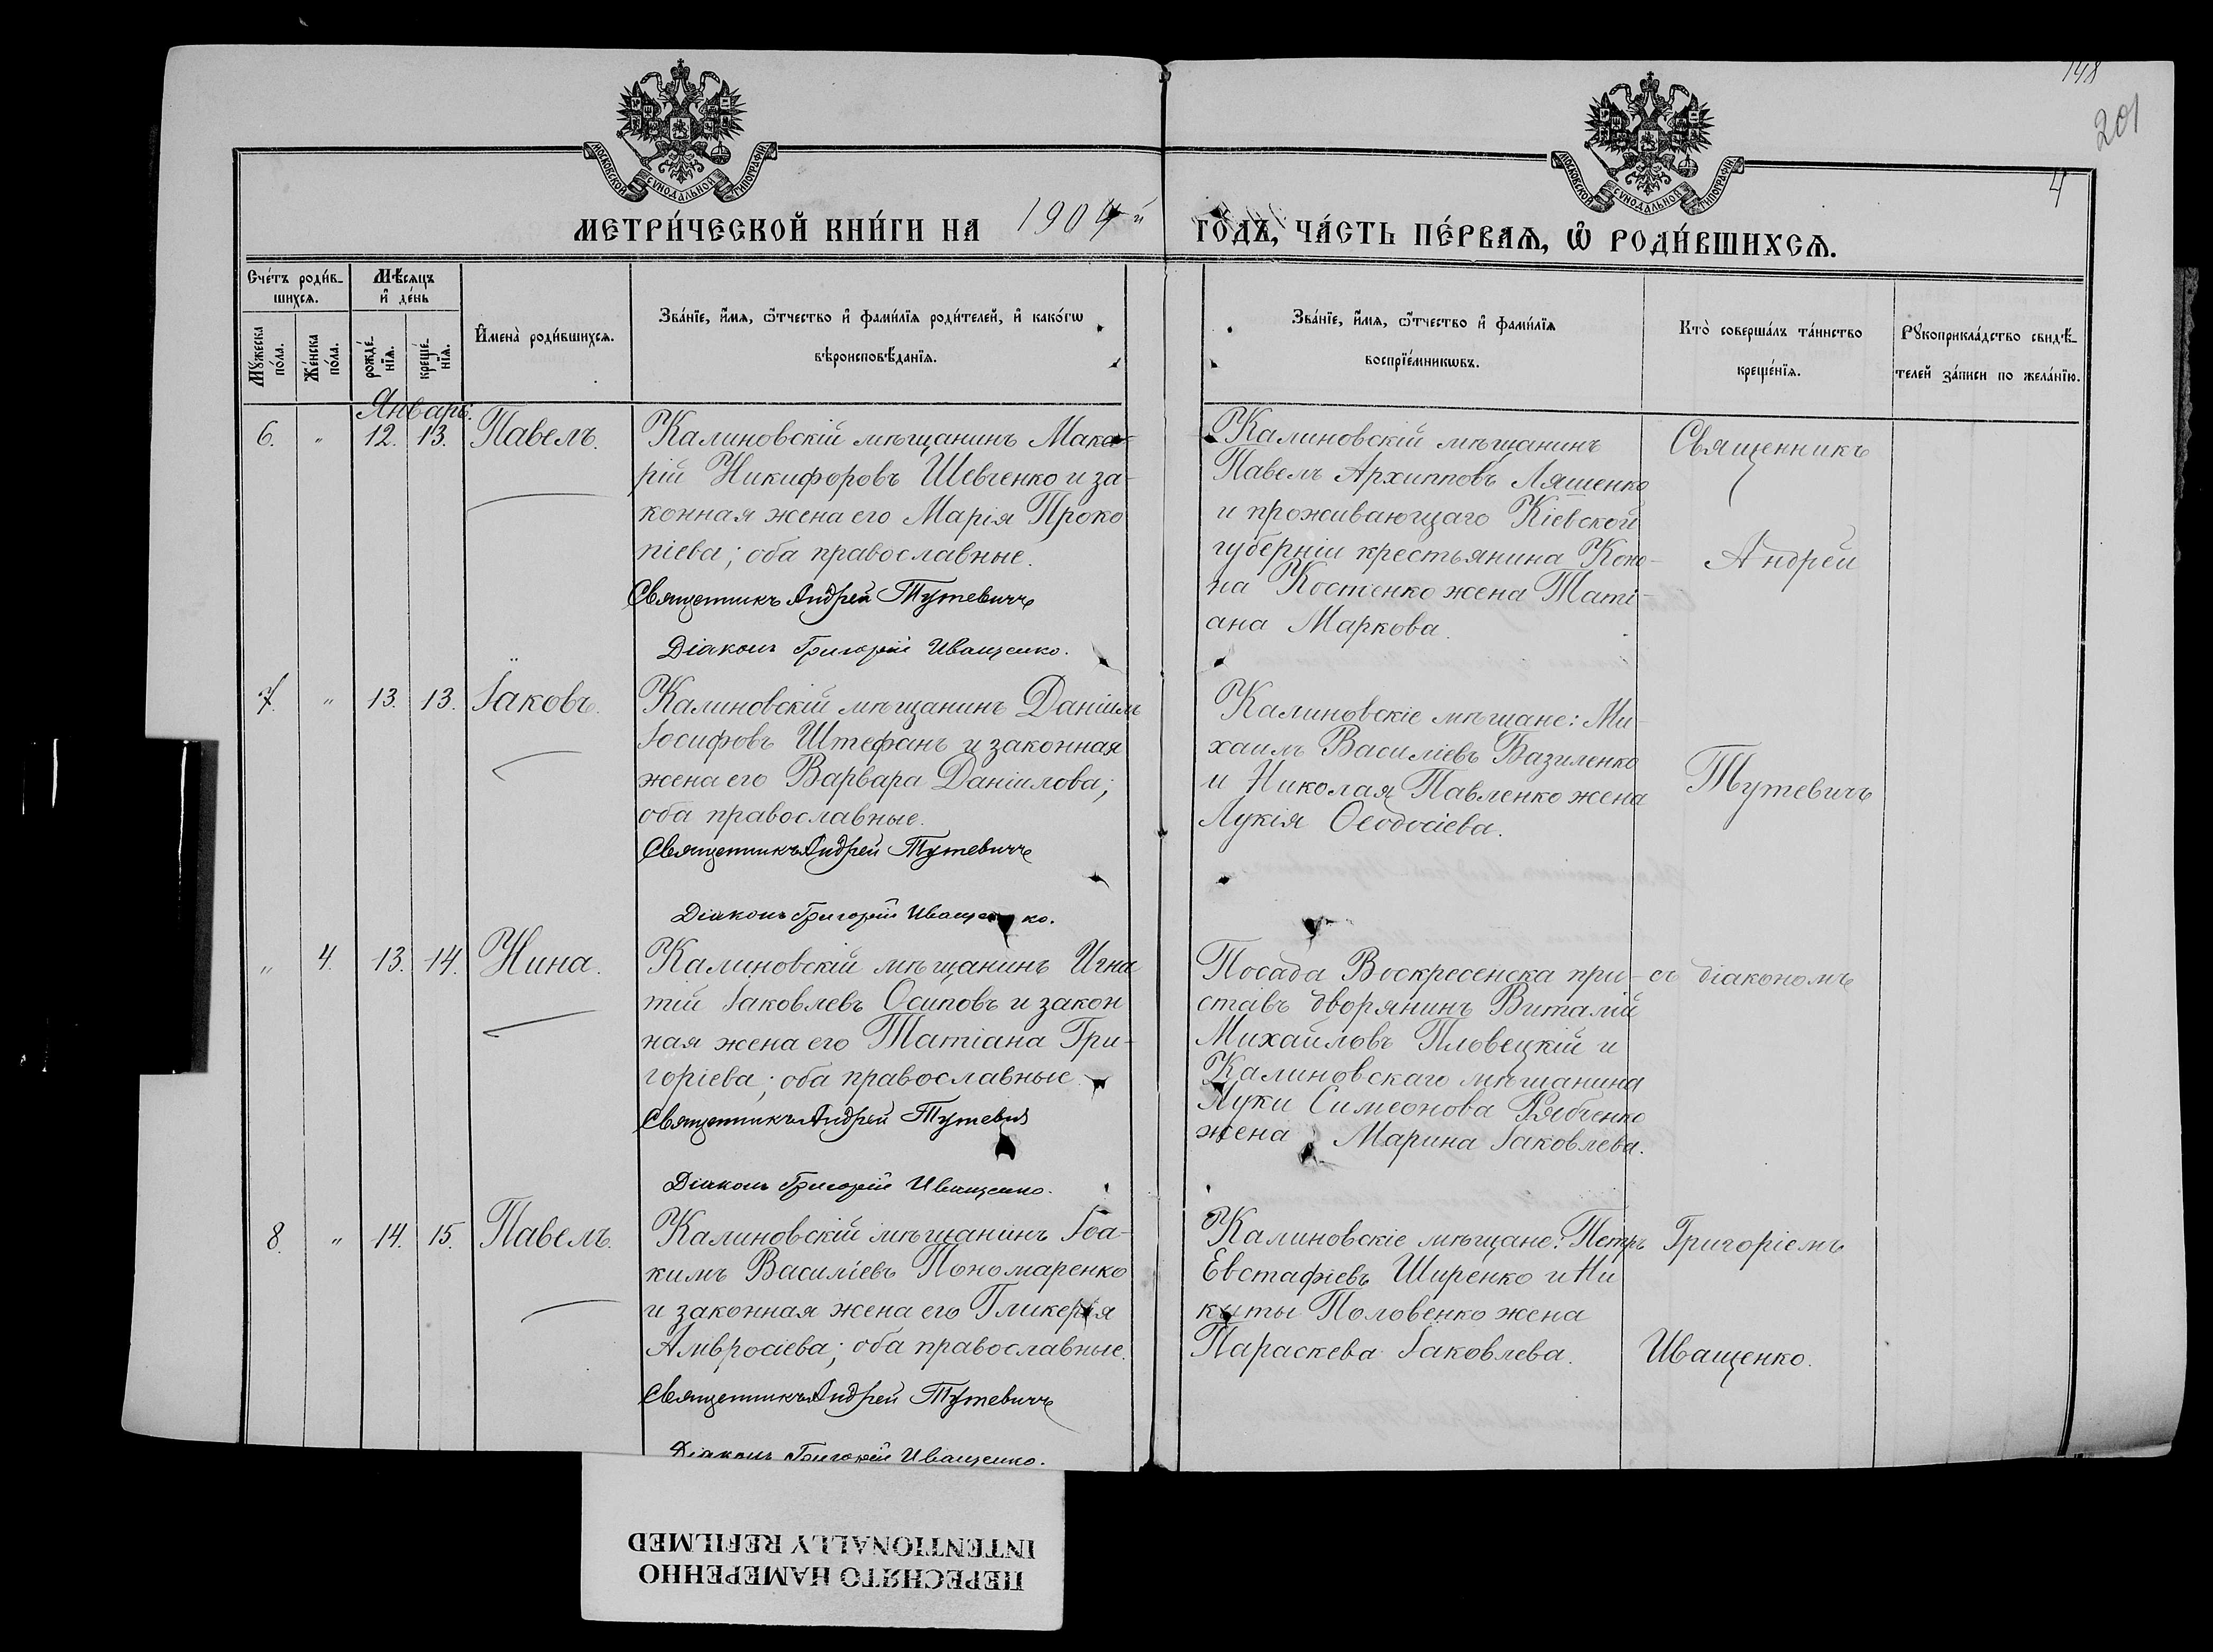 148
201
4
МОСКОВСКОЙ СѴНОДАЛЬНОЙ ТИПОГРАФІИ
МОСКОВСКОЙ СѴНОДАЛЬНОЙ ТИПОГРАФІИ
МЕТРИ́ЧЕСКОЙ КНИ́ГИ НА 1904 й ГО́ДЪ, ЧА́СТЬ ПЕ́РВАѦ, Ѽ РОДИ́ВШИХСѦ.
Сче́тъ роди́в-
шихсѧ.
Мѣ́сѧцъ
и҆ де́нь
Мꙋ́жеска
по́ла.
Же́нска
по́ла.
рожде́-
нїѧ.
креще́-
нїѧ.
И҆мена̀ роди́вшихсѧ.
Зва́нїе, и҆́мѧ, ѻ҆́тчество и҆ фами́лїѧ роди́телей, и҆ како́гѡ
вѣроисповѣ́данїѧ.
Зва́нїе, и҆́мѧ, ѻ҆́тчество и҆ фами́лїѧ
воспрїе́мникѡвъ.
Кто̀ соверша́лъ та́инство
креще́нїѧ.
Рꙋкоприкла́дство свидѣ́-
телей за́писи по жела́нїю.
Январь.
6. " 12. 13. Павелъ.
Калиновскій мѣщанинъ Мака-
рій Никифоровъ Шевченко и за-
конная жена его Марія Проко
піева; оба православные.
Священникъ Андрей Тутевичъ
Діаконъ Григорій Иващенко.
Калиновскій мѣщанинъ
Павелъ Архипповъ Ляшенко
и проживающаго Кіевской
губерніи крестьянина Коно-
на Костенко жена Таті-
ана Маркова.
Священникъ
Андрей
7. " 13. 13. Іаковъ.
Калиновскій мѣщанинъ Даніилъ
Іосифовъ Штефанъ и законная
жена его Варвара Даніилова;
оба православные.
Священникъ Андрей Тутевичъ
Діаконъ Григорій Иващенко.
Калиновскіе мѣщане: Ми-
хаилъ Василіевъ Базиленко
и Николая Павленко жена
Лукія Ѳеодосіева.
Тутевичъ
" 4. 13. 14. Нина.
Калиновскій мѣщанинъ Игна
тій Іаковлевъ Осиповъ и закон
ная жена его Татіана Гри-
горіева; оба православные.
Священникъ Андрей Тутевич
Діаконъ Григорій Иващенко.
Посада Воскресенска при-
ставъ дворянинъ Виталій
Михайловъ Пловецкій и
Калиновскаго мѣщанина
Луки Симеонова Рябченко
жена Марина Іаковлева.
съ діакономъ
8. " 14. 15. Павелъ.
Калиновскій мѣщанинъ Іоа-
кимъ Василіевъ Пономаренко
и законная жена его Гликерія
Амвросіева; оба православные.
Священникъ Андрей Тутевичъ
Діаконъ Григорій Иващенко.
Калиновскіе мѣщане: Петръ
Евстафіевъ Ширенко и Ни
киты Половенко жена
Параскева Іаковлева.
Григоріемъ
Иващенко.
ПЕРЕСНЯТО НАМЕРЕННО
INTENTIONALLY REFILMED